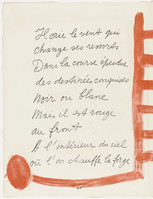 Horie le vent qui
change ses renvois
Dans la course épandue
des destinées conquises
Noir ou blanc
Mais il est rouge
au front
À l'intérieur du ciel
où l'on chauffe la forge